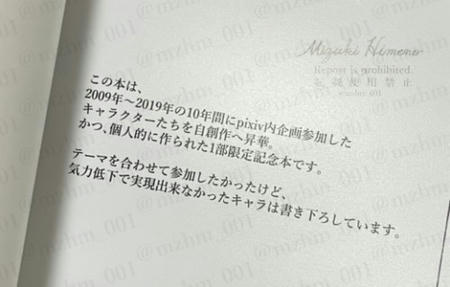 Mizuki Himeno
Repost is prohibited.
無断使用禁止
@mzhm_001
この本は、
2009年～2019年の10年間にpixiv内企画参加した
キャラクターたちを自創作へ昇華。
かつ、個人的に作られた1部限定記念本です。
テーマを合わせて参加したかったけど、
気力低下で実現出来なかったキャラは書き下ろしています。